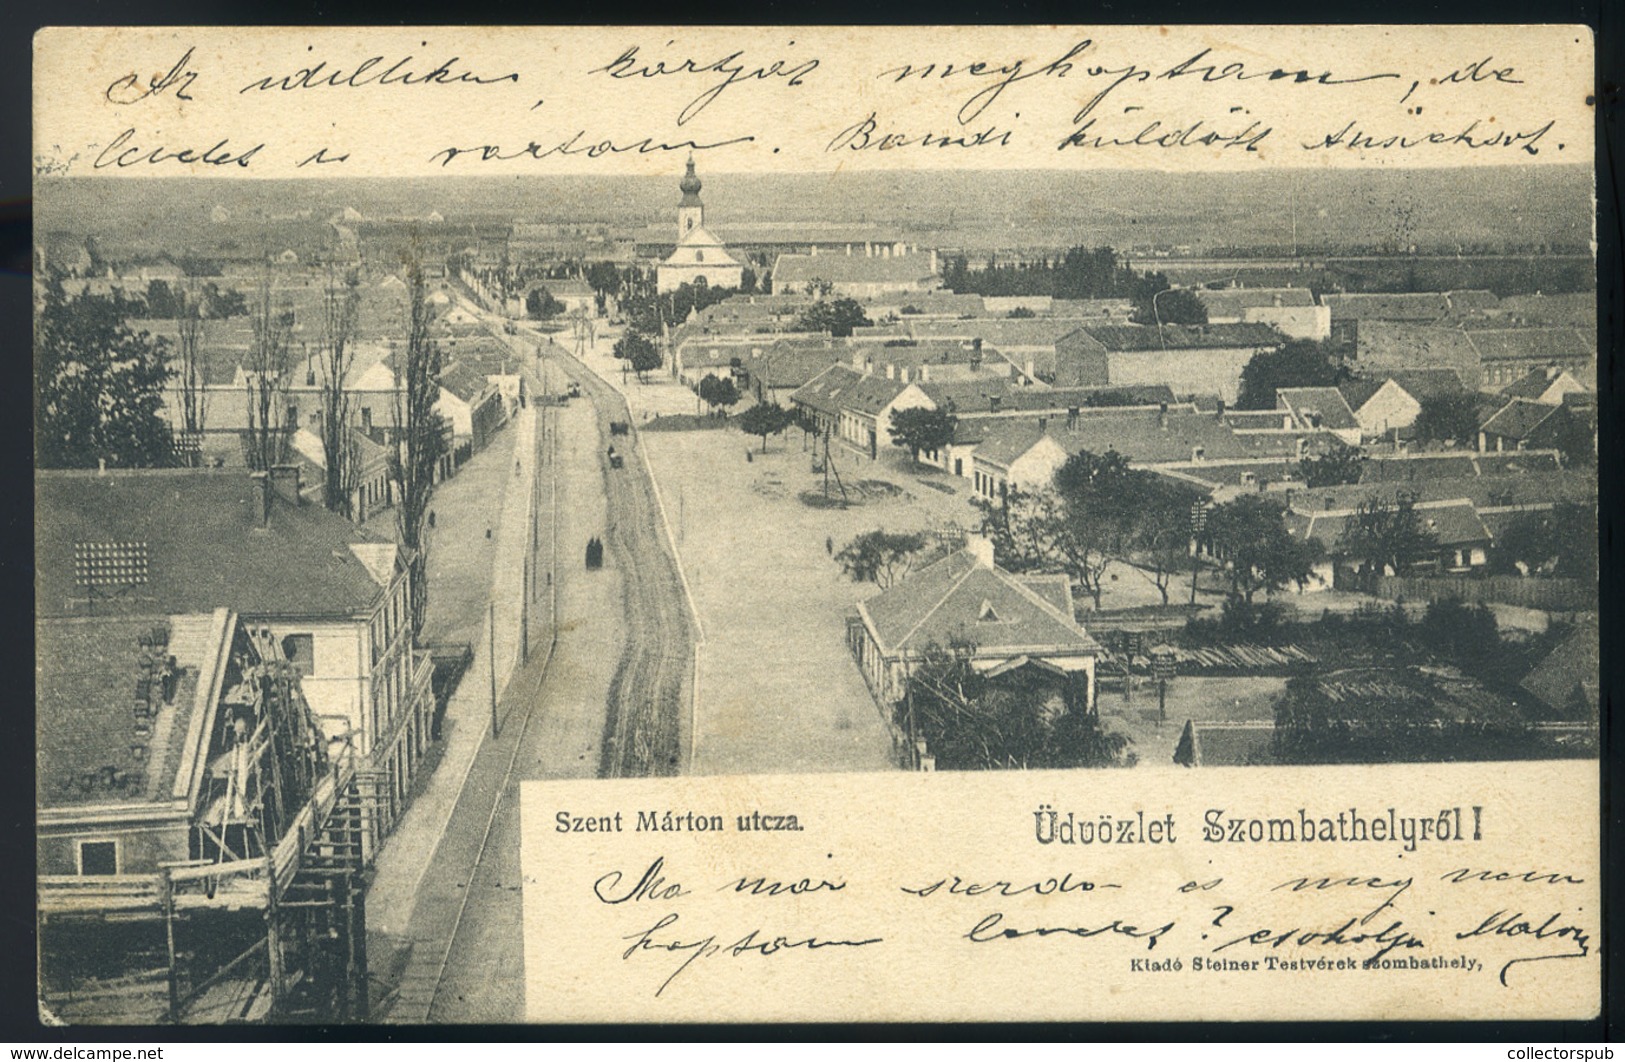 Az idillikus kártját megkaptam, de
levelet is vártam. Bandi küldött
Szent Márton utcza.
Üdvözlet Szombathelyről!
Ma már szerda és még nem
kaptam levelet? csókolja
Kiadó Steiner Testvérek szombathely,
collectorspub